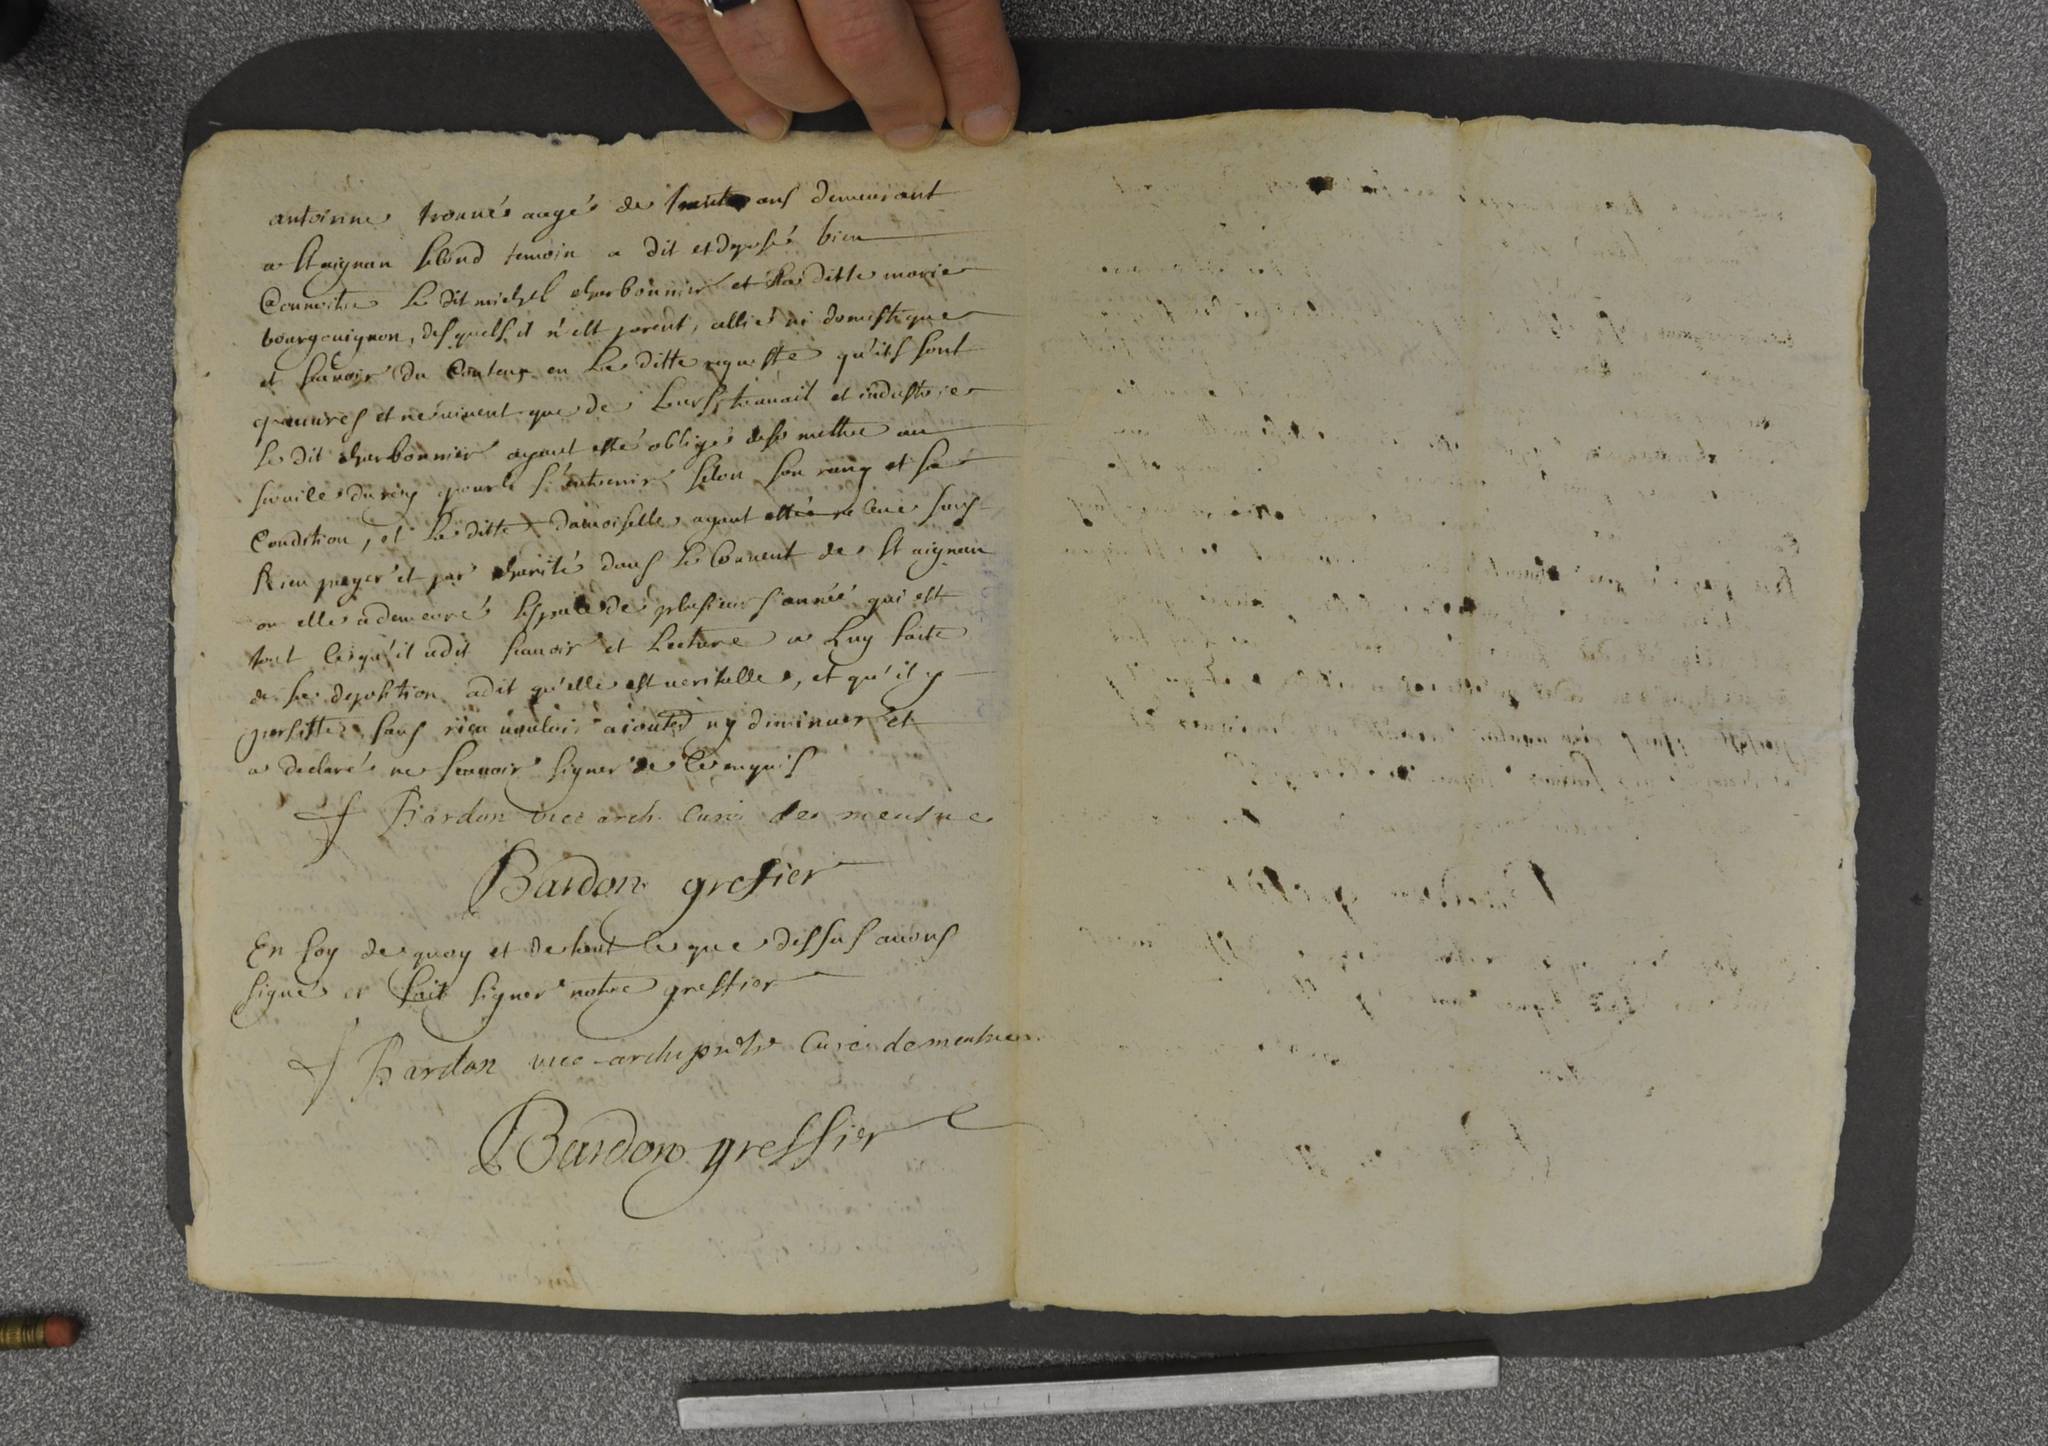 antoinne trouué aagé de trente ans demeurant
a St aignan second temoin a dit et deposé bien
Connoitre Le dit michel charbonnier et La ditte marie
bourgouignon, desquels il n'est parent, allié ni domestique
et scauoir du Contenu en La ditte requeste qu'ils sont
pauures et ne uiuent que de Leurs trauail et industrie
Le dit charbonnier ayant esté obligé de se mettre au
seruice du roy pour s'entretenir selon son rang et sa
Condition, et La ditte damoiselle ayant esté receüe sans
Rien payer et par charité dans Le Conuent de St aignan
ou elle a demeuré L'espace de plusieurs année qui est
tout Ce qu'il a dit scauoir et Lecture a Luy faite
de sa deposition a dit qu'elle est ueritable, et qu'il y
persiste sans rien uouloir aiouter ny diminuer et
a declaré ne scauoir signer de Ce enquis
Bardon vice arch. Curé de meusne
Bardon greffier
En foy de quoy et de tout Ce que dessus auons
signé et fait signer notre greffier
Bardon vice-archiprêtre Curé de meusne
Bardon greffier